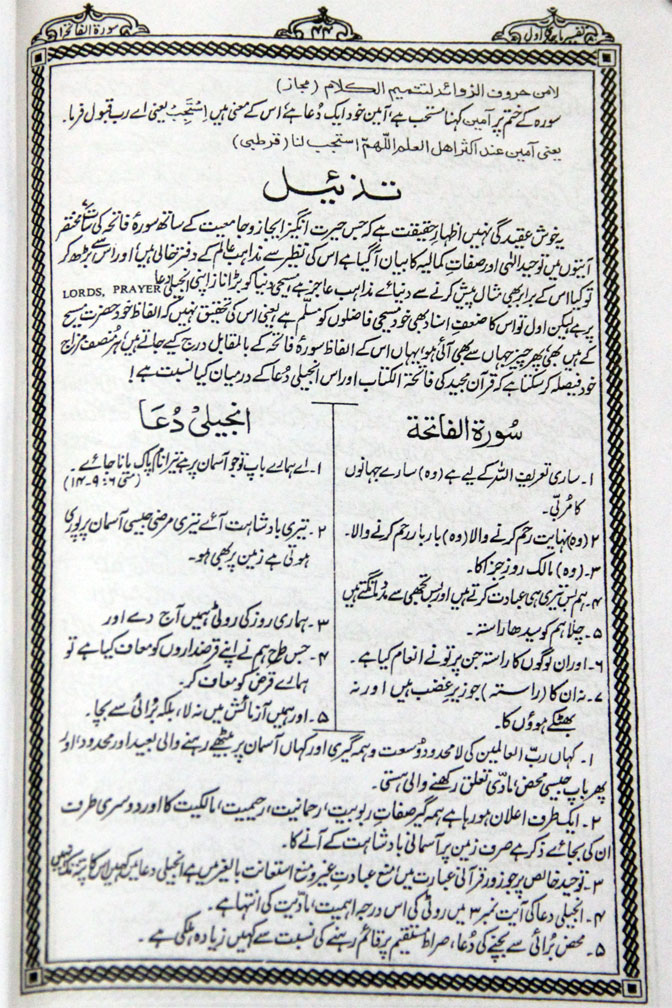 تفسیر ماجدی اول
۴۴
سورة الفاتحة ۱
لامن حروف الزوائد لتتمیم الکلام (مجاز)
سورہ کے ختم پر آمین کہنا مستحب ہے، آمین خود ایک دُعا ہے، اس کے معنی ہیں اِسْتَجِبْ یعنی اے رب قبول فرما۔
یعنی آمین عند اکثر اهل العلم اللّٰهمّ استجب لنا (قرطبی)
تذئیل
یہ خوش عقیدگی نہیں اظہارِ حقیقت ہے کہ جس حیرت انگیز ایجاز و جامعیت کے ساتھ سورۂ فاتحہ کی سات مختصر
آیتوں میں توحید الٰہی اور صفاتِ کمالیہ کا بیان آگیا ہے اس کی نظیر سے مذاہب عالم کے دفتر خالی ہیں! اور اس سے بڑھ کر
تو کیا اس کے برابر بھی مثال پیش کرنے سے دنیائے مذاہب عاجز ہے، مسیحی دنیا کو بڑا ناز اپنی انجیلی دعا LORDS, PRAYER
پر ہے لیکن اول تو اس کا ضعفِ اسناد بھی خود مسیحی فاضلوں کو مسلّم ہے یعنی اس کی تحقیق نہیں کہ الفاظ خود حضرت مسیح
کے ہیں بھی، پھر چیز جہاں سے بھی آئی ہو، یہاں اس کے الفاظ سورۂ فاتحہ کے بالمقابل درج کیے جاتے ہیں، ہر منصف مزاج
خود فیصلہ کر سکتا ہے کہ قرآن مجید کی فاتحۃ الکتاب اور اس انجیلی دُعا کے درمیان کیا نسبت ہے!
سُورة الفاتحة
۱۔ ساری تعریف اللہ کے لیے ہے (وہ) سارے جہانوں
کا مُربّی۔
۲ (وہ) نہایت رحم کرنے والا (وہ) بار بار رحم کرنے والا۔
۳۔ (وہ) مالک روزِ جزا کا۔
۴۔ ہم بس تیری ہی عبادت کرتے ہیں اور بس تجھی سے مدد مانگتے ہیں
۵۔ چلا ہم کو سیدھا راستہ۔
۶۔ اور ان لوگوں کا راستہ جن پر تو نے انعام کیا ہے۔
۷۔ نہ ان کا (راستہ) جو زیرِ غضب ہیں اور نہ
بھٹکے ہوؤں کا۔
انجیلی دُعا
۱۔ اے ہمارے باپ تو جو آسمان پر ہے تیرا نام پاک مانا جائے۔
(متی ۶:۹-۱۴)
۲۔ تیری بادشاہت آئے تیری مرضی جیسی آسمان پر پوری
ہوتی ہے زمین پر بھی ہو۔
۳۔ ہماری روز کی روٹی ہمیں آج دے اور
۴۔ جس طرح ہم نے اپنے قرضداروں کو معاف کیا ہے تو
ہمارے قرض کو معاف کر۔
۵۔ اور ہمیں آزمائش میں نہ لا، بلکہ بُرائی سے بچا۔
۱۔ کہاں ربّ العالمین کی لا محدود وسعت و ہمہ گیری اور کہاں آسمان پر بیٹھے رہنے والی بعید اور محدود، اور
پھر باپ جیسی محض مادّی تعلق رکھنے والی ہستی۔
۲۔ ایک طرف اعلان ہو رہا ہے ہمہ گیر صفاتِ ربوبیت، رحمانیت، رحیمیت، مالکیت کا اور دوسری طرف
ان کی بجائے ذکر ہے صرف زمین پر آسمانی بادشاہت کے آنے کا۔
۳۔ توحیدِ خالص پر جو زور قرآنی عبارت میں، منع عبادتِ غیر و منع استعانت بالغیر میں ہے انجیلی دعا میں کہیں اس کا پتہ تک نہیں
۴۔ انجیلی دعا کی آیت نمبر ۳ میں روٹی کی اس درجہ اہمیت، مادّیت کی انتہا ہے۔
۵۔ محض بُرائی سے بچنے کی دُعا، صراط مستقیم پر قائم رہنے کی نسبت سے کہیں زیادہ ہلکی ہے۔